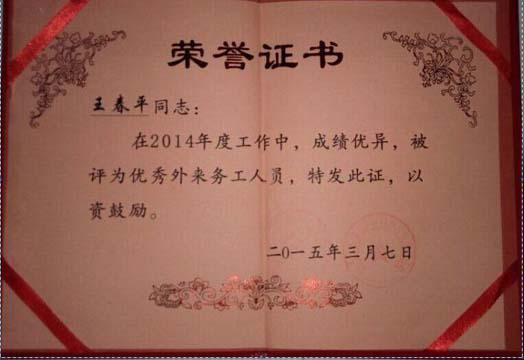 荣誉证书
王春平同志：
在2014年度工作中，成绩优异，被
评为优秀外来务工人员，特发此证，以
资鼓励。
二〇一五年三月七日